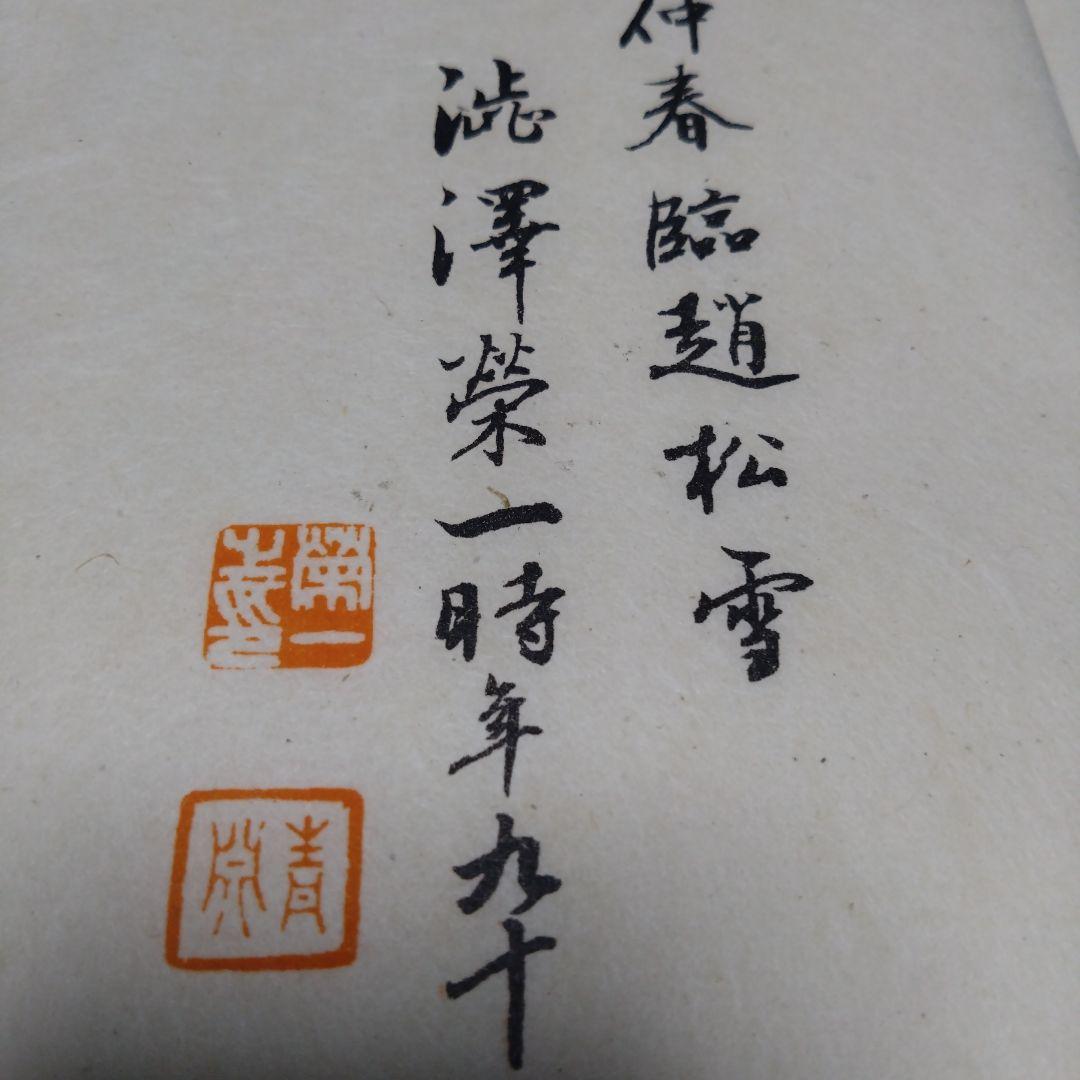 仲春臨趙松雪
澁澤榮一時年九十
榮一
青